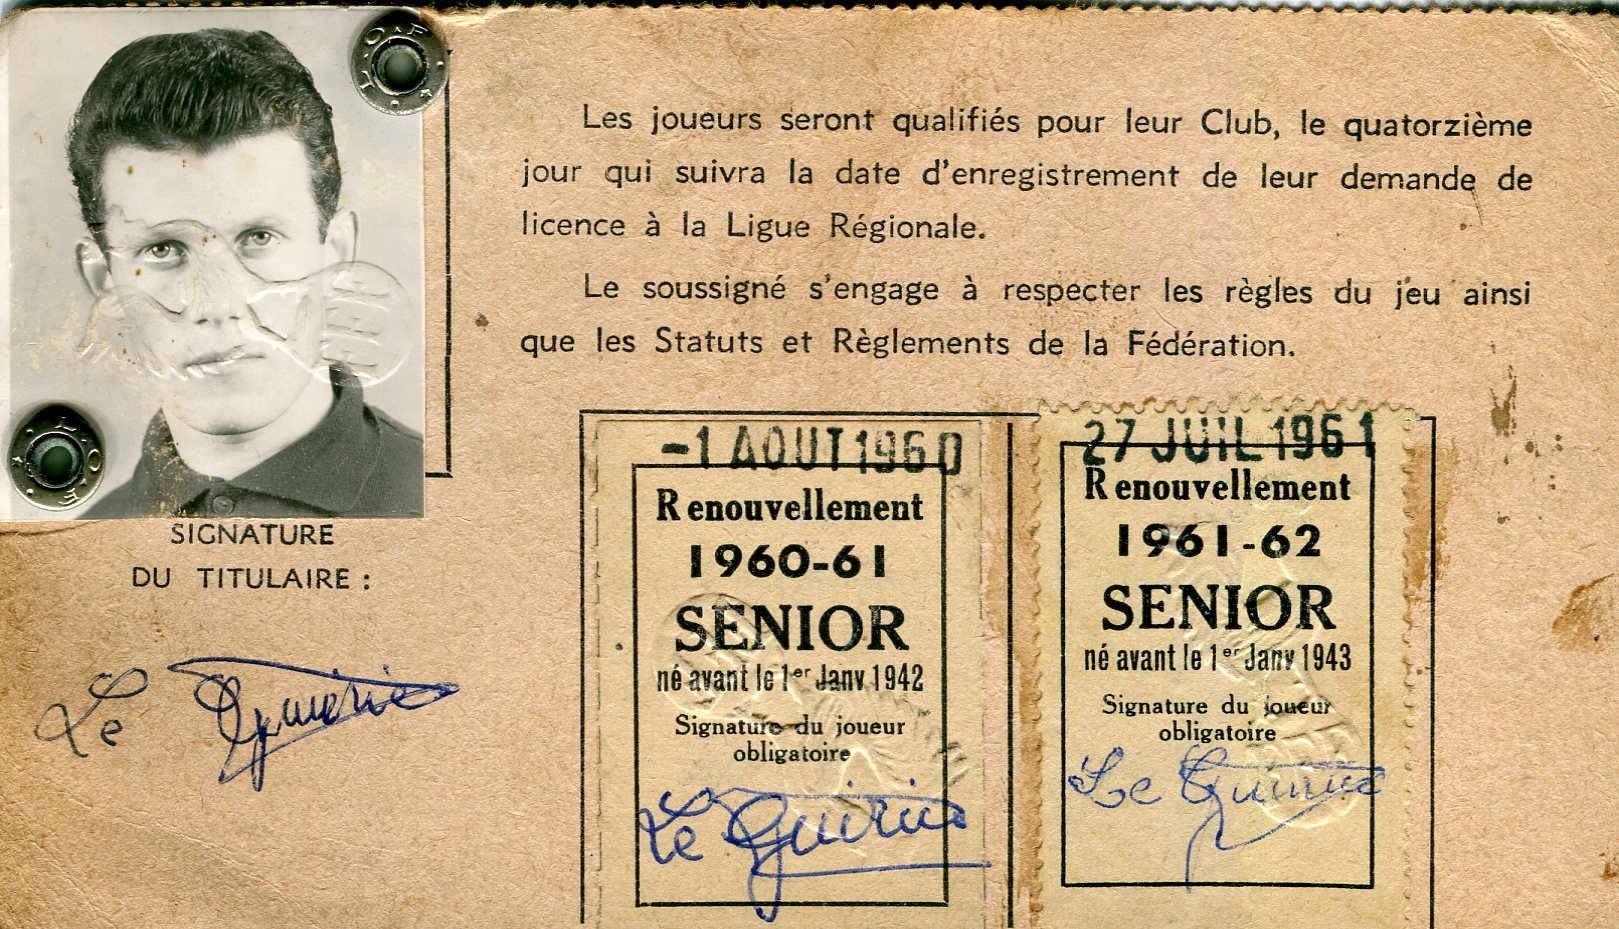 L.O.F
Les joueurs seront qualifiés pour leur Club, le quatorzième
jour qui suivra la date d'enregistrement de leur demande de
licence à la Ligue Régionale.
Le soussigné s'engage à respecter les règles du jeu ainsi
que les Statuts et Règlements de la Fédération.
L.O.F
SIGNATURE
DU TITULAIRE :
Le
-1 AOUT 1960
Renouvellement
1960-61
SENIOR
né avant le 1er Janv 1942
Signature du joueur
obligatoire
Le
27 JUIL 1961
Renouvellement
1961-62
SENIOR
né avant le 1er Janv 1943
Signature du joueur
obligatoire
Le